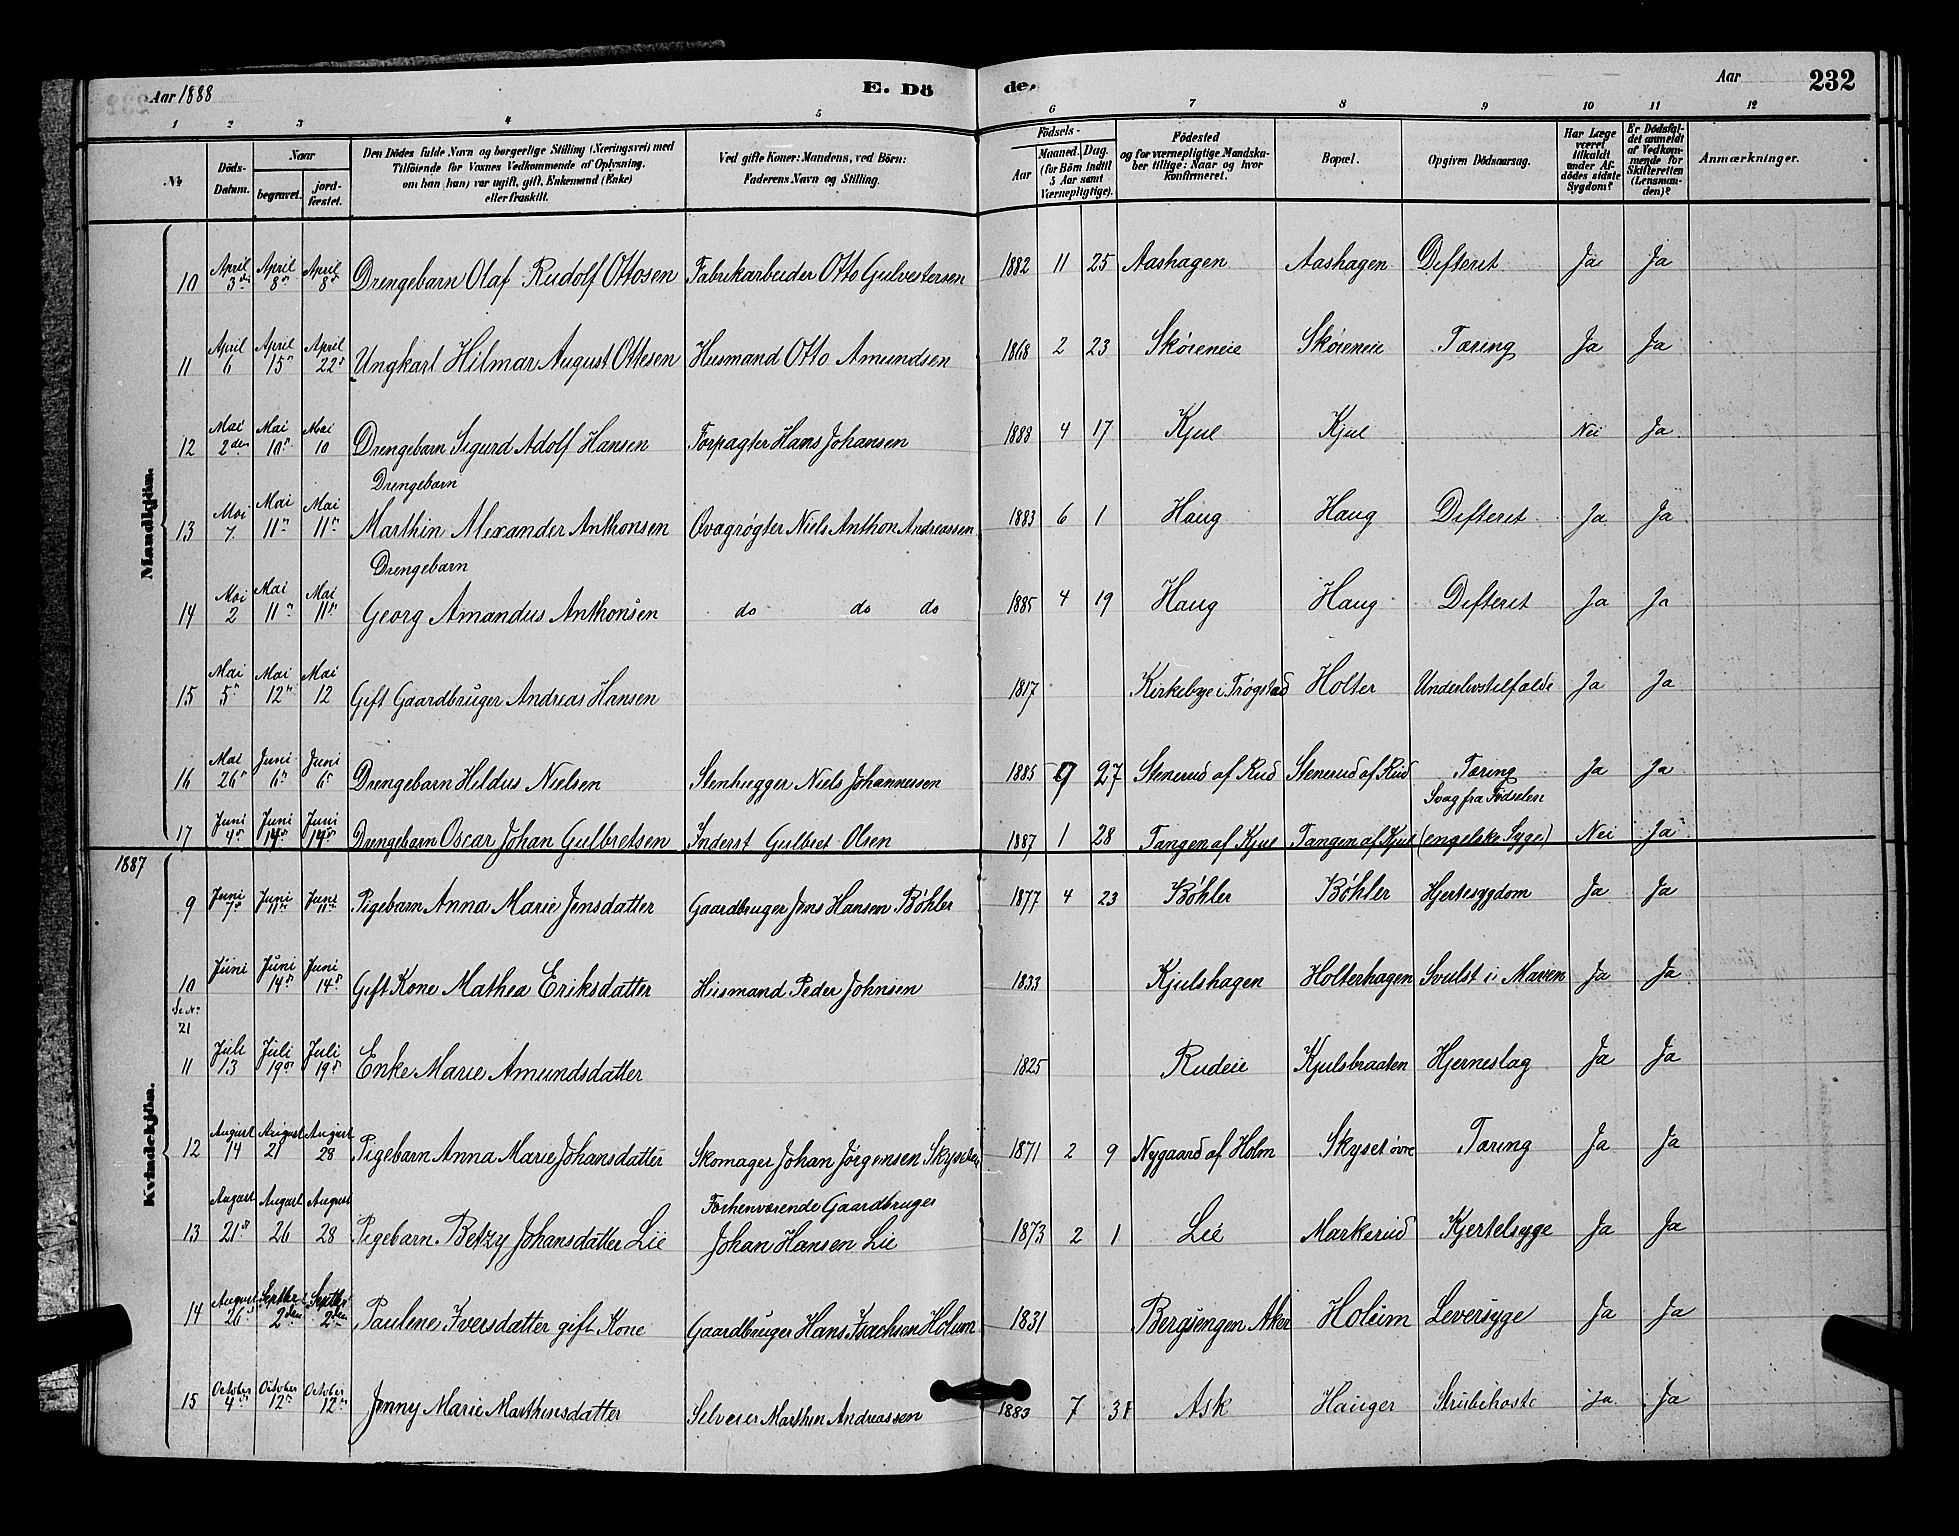 Aar 1888 E. Dö de. Aar 232
1 2 3 4 5 6 7 8 9 10 11 12
No
Döds-
Datum.
Naar
begravet.
jord-
fæstet.
Den Dödes fulde Navn og borgerlige Stilling (Næringsvei) med
Tilföiende for Voxnes Vedkommende af Oplysning,
om han (hun) var ugift, gift, Enkemand (Enke)
eller fraskilt.
Ved gifte Koner: Mandens, ved Börn:
Faderens Navn og Stilling.
Födsels-
Aar
Maaned. Dag.
(for Börn indtil
5 Aar samt
Værnepligtige).
Födested
og for værnepligtige Mandska-
ber tillige: Naar og hvor
konfirmeret.
Bopæl.
Opgiven Dödsaarsag.
Har Læge
været
tilkaldt
under Af-
dödes sidste
Sygdom?
Er Dödsfal-
det anmeldt
af Vedkom-
mende for
Skifteretten
(Lensman-
den)?
Anmærkninger.
Mandkjön.
10 April 3die April 8de April 8de Drengebarn Olaf Rudolf Ottosen Fabrikarbeider Otto Gulvestersen 1882 11 25 Aashagen Aashagen Difterit Ja Ja
11 April 6 April 15de April 22de Ungkarl Hilmar August Ottesen Husmand Otto Amundsen 1868 2 23 Skøreneie Skøreneie Tæring Ja Ja
12 Mai 2den Mai 10de Mai 10 Drengebarn Sigurd Adolf Hansen Forpagter Hans Johansen 1888 4 17 Kjul Kjul Nei Ja
Drengebarn
13 Mai 7 Mai 11te Mai 11te Marthin Alexander Anthonsen Qvægrøgter Niels Anthon Andreassen 1883 6 1 Haug Haug Difterit Ja Ja
Drengebarn
14 Mai 2 Mai 11te Mai 11te Georg Amandus Anthonsen do do do 1885 4 19 Haug Haug Difterit Ja Ja
15 Mai 5te Mai 12te Mai 12 Gift Gaardbruger Andreas Hansen 1817 Kirkebye i Trøgstad Holter Underlivstilfælde Ja Ja
16 Mai 26de Juni 6te Juni 6te Drengebarn Hildus Nielsen Stenhugger Niels Johannessen 1885 9 27 Stenerud af Rud Stenerud af Rud Tæring Ja Ja
Svag fra Fødselen
17 Juni 4de Juni 14de Juni 14de Drengebarn Oscar Johan Gulbretsen Inderst Gulbret Olsen 1887 1 28 Tangen af Kjul Tangen af Kjul (engelske Syge) Nei Ja
1887
Kvindekjön.
9 Juni 7de Juni 11te Juni 11te Pigebarn Anna Marie Jensdatter Gaardbruger Jens Hansen Bøhler 1877 4 23 Bøhler Bøhler Hjertesygdom Ja Ja
10 Juni Juni 14de Juni 14de Gift Kone Mathea Eriksdatter Husmand Peder Johnsen 1833 Kjulshagen Holterhagen Svulst i Maven Ja Ja
Se No
21
11 Juli 13 Juli 19de Juli 19de Enke Marie Amundsdatter 1825 Rudeie Kjulsbraaten Hjerneslag Ja Ja
12 August 14 August 21 August 28 Pigebarn Anna Marie Johansdatter Skomager Johan Jørgensen 1871 2 9 Nygaard af Holm Skyset øvre Tæring Ja Ja
Forhenværende Gaardbruger
13 August 21de August 26 August 28 Pigebarn Betzy Johansdatter Lie Johan Hansen Lie 1873 2 1 Lie Markerud Kjertelsyge Ja Ja
14 August 26 Septbr 2den Septbr 2den Paulene Iversdatter gift Kone Gaardbruger Hans Isachsen Holum 1831 Bergsengen Aker Holum Leversyge Ja Ja
15 October 4de October 12te October 12te Jenny Marie Marthinsdatter Selveier Marthin Andreassen 1883 7 31 Ask Hauger Strubehoste Ja Ja